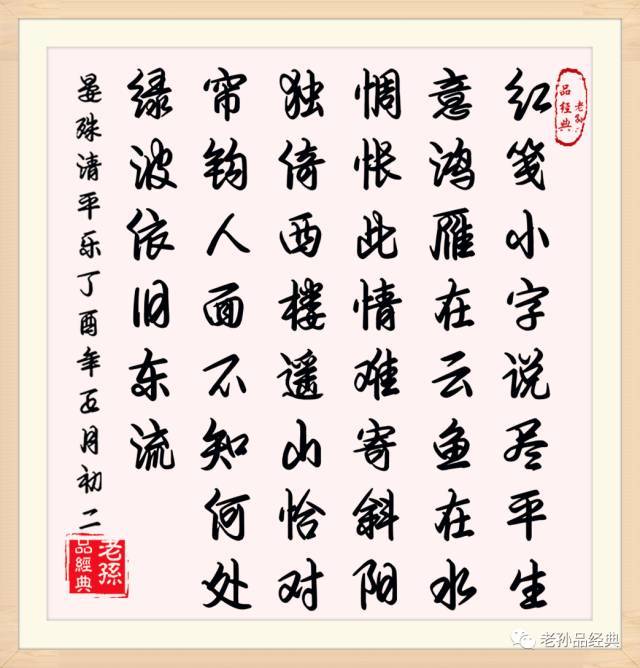 红笺小字说尽平生
意鸿雁在云鱼在水
惆怅此情难寄斜阳
独倚西楼遥山恰对
帘钩人面不知何处
绿波依旧东流
晏殊清平乐丁酉年五月初二
老孙
品經典
老孫
品經典
老孙品经典